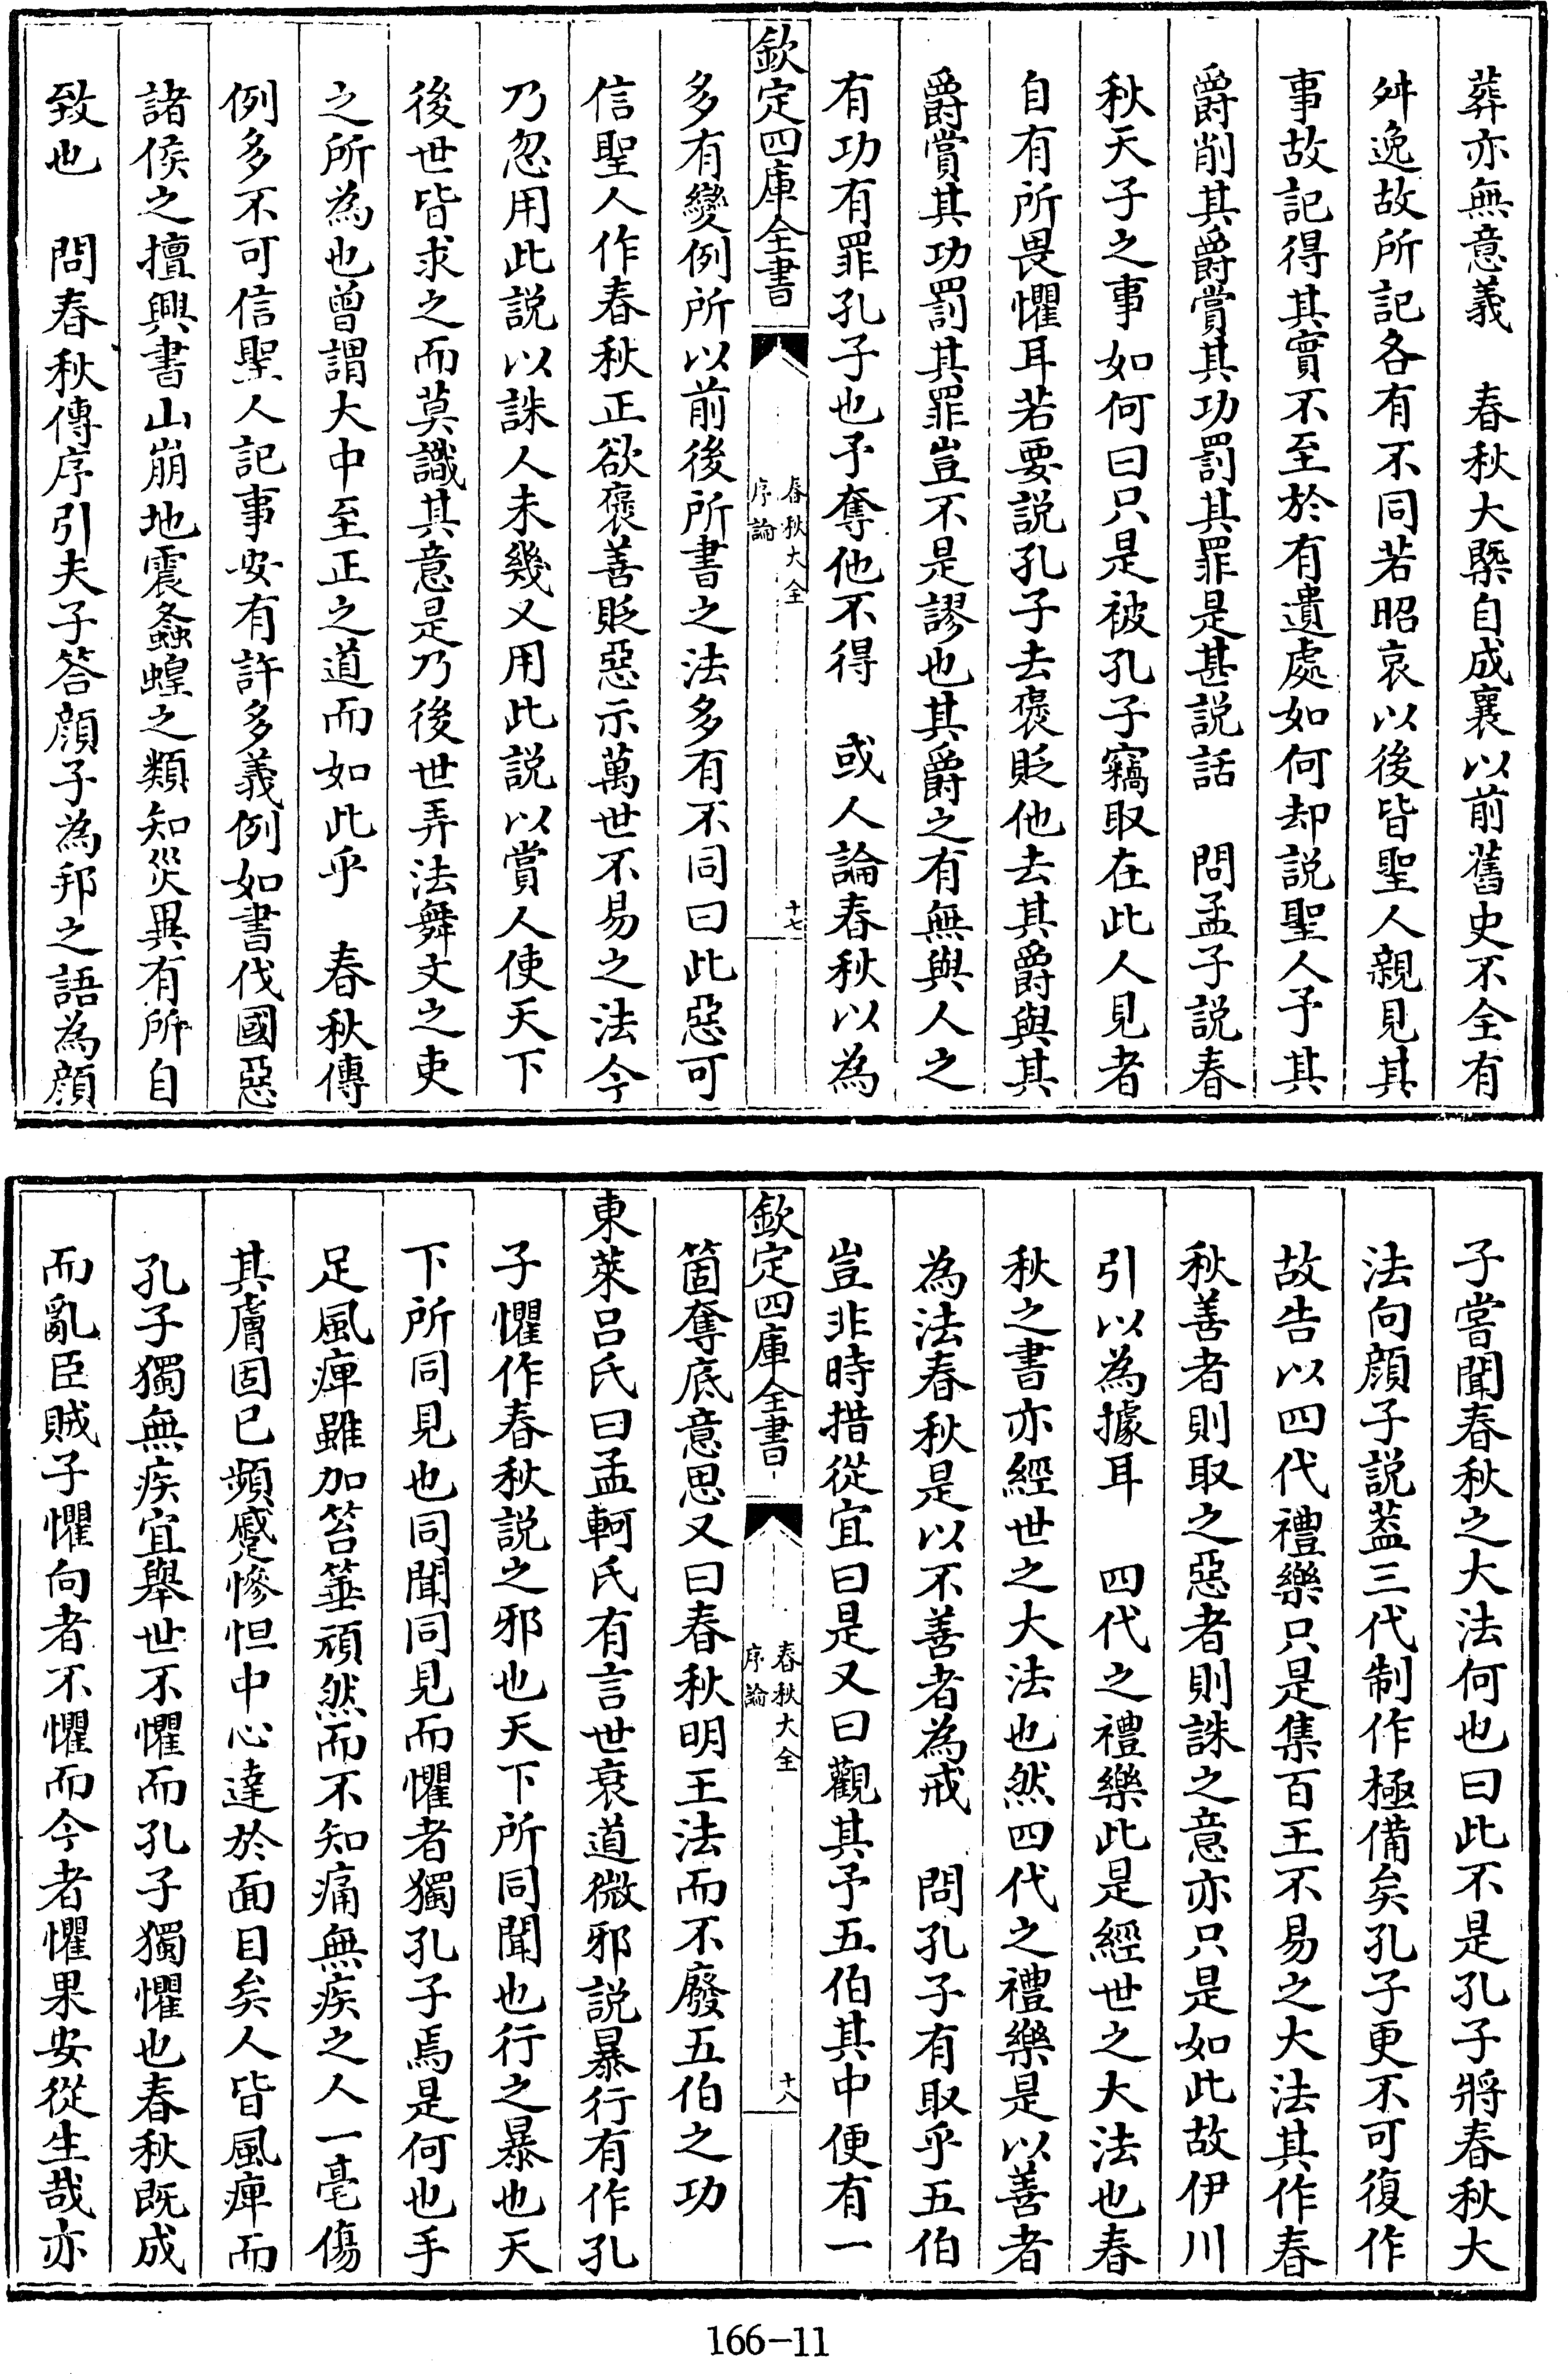 葬亦無意義　春秋大槩自成襄以前舊史不全有
舛逸故所記各有不同若昭哀以後皆聖人親見其
事故記得其實不至於有遺處如何却説聖人予其
爵削其爵賞其功罰其罪是甚説話　問孟子説春
秋天子之事如何曰只是被孔子竊取在此人見者
自有所畏懼耳若要説孔子去褒貶他去其爵與其
爵賞其功罰其罪豈不是謬也其爵之有無與人之
有功有罪孔子也予奪他不得　或人論春秋以為
欽定四庫全書
春秋大全
序論
十七
多有變例所以前後所書之法多有不同曰此惡可
信聖人作春秋正欲褒善貶惡示萬世不易之法今
乃忽用此説以誅人未幾又用此説以賞人使天下
後世皆求之而莫識其意是乃後世弄法舞文之吏
之所為也曾謂大中至正之道而如此乎　春秋傳
例多不可信聖人記事安有許多義例如書伐國惡
諸侯之擅興書山崩地震螽蝗之類知災異有所自
致也　問春秋傳序引夫子答顔子為邦之語為顔
子嘗聞春秋之大法何也曰此不是孔子將春秋大
法向顔子説葢三代制作極備矣孔子更不可復作
故告以四代禮樂只是集百王不易之大法其作春
秋善者則取之惡者則誅之意亦只是如此故伊川
引以為據耳　四代之禮樂此是經世之大法也春
秋之書亦經世之大法也然四代之禮樂是以善者
為法春秋是以不善者為戒　問孔子有取乎五伯
豈非時措從宜曰是又曰觀其予五伯其中便有一
欽定四庫全書
春秋大全
序論
十八
箇奪底意思又曰春秋明王法而不廢五伯之功
東萊吕氏曰孟軻氏有言世衰道微邪説暴行有作孔
子懼作春秋説之邪也天下所同聞也行之暴也天
下所同見也同聞同見而懼者獨孔子焉是何也手
足風痺雖加笞箠頑然而不知痛無疾之人一毫傷
其膚固已頻蹙慘怛中心達於面目矣人皆風痺而
孔子獨無疾宜舉世不懼而孔子獨懼也春秋既成
而亂臣賊子懼向者不懼而今者懼果安從生哉亦
166-11